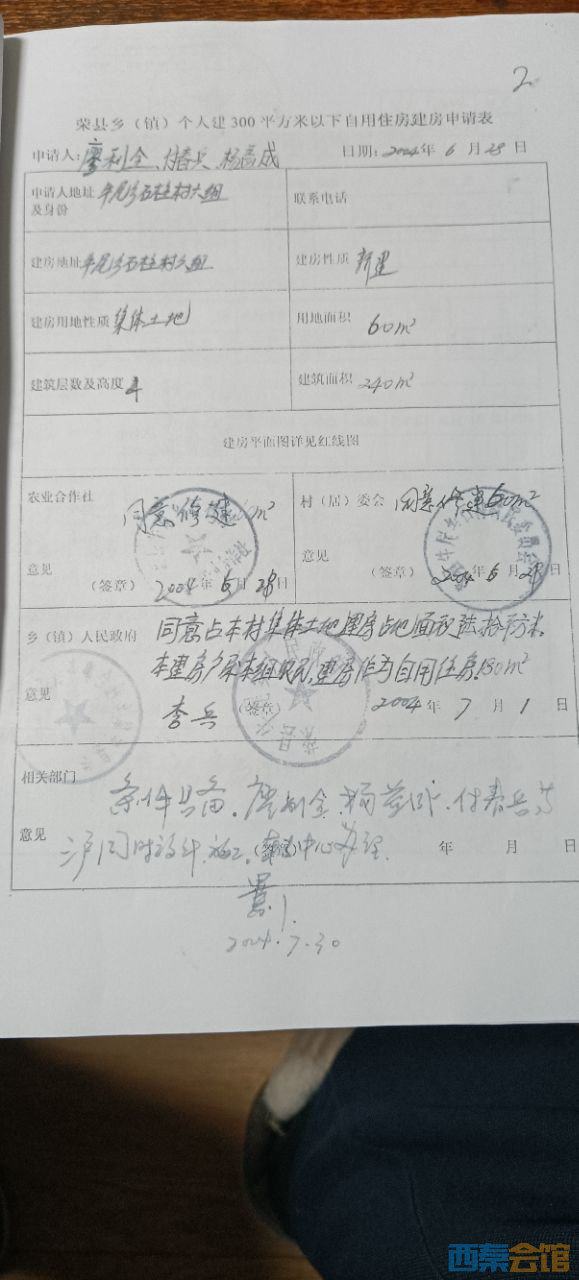 2
荣县乡（镇）个人建300平方米以下自用住房建房申请表
申请人：廖利全、付春兵、杨益成 日期：2004年6月28日
申请人地址及身份 牟尾多石柱村六组 联系电话
建房地址 牟尾多石柱村六组 建房性质 新建
建房用地性质 集体土地 用地面积 60m²
建筑层数及高度 4 建筑面积 240m²
建房平面图详见红线图
农业合作社 同意修建 m²
意见 （签章） 2004年6月28日
村（居）委会 同意修建60m²
意见 （签章） 2004年6月28日
乡（镇）人民政府 同意占本村集体土地建房占地面积陆拾平方米。
本建房户系本组农民，建房作为自用住房180m²
意见 李兵 （签章） 2004年7月1日
相关部门 条件具备。廖利全、杨益成、付春兵等
意见 三户同时设计、施工。中心办理 （签章） 年 月 日
2004.7.30
西秦会馆